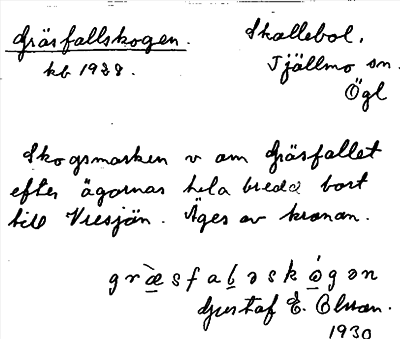 Gräsfallskogen.
kb 1928.
Skallebol,
Tjällmo sn.
Ögl
Skogsmarken v om Gräsfallet
efter ägornas hela bredd bort
till Vresjön. Äges av kronan.
græ̀sfaḷəskóɡən
Gustaf E. Olsson.
1930